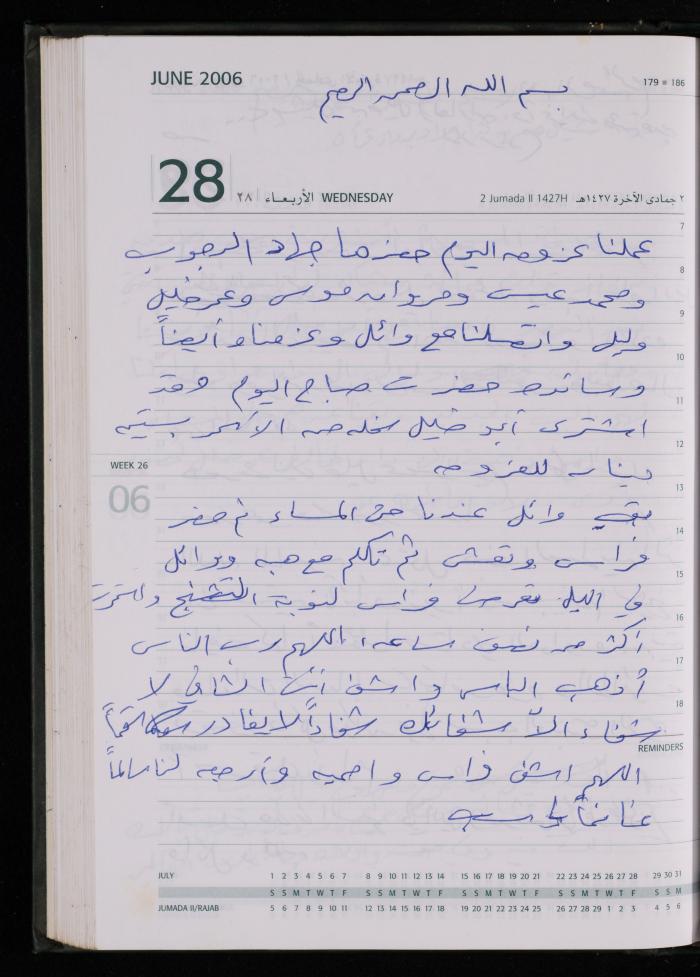 JUNE 2006
179 = 186
بسم الله الرحمن الرحيم
28
٢٨ الأربعاء WEDNESDAY
2 Jumada II 1427H ٢ جمادى الآخرة ١٤٢٧هـ
7
عملنا عزومه اليوم حضرها جهاد الرجوب
8
ومحمد عيسى ومروان موسى وعمر خليل
9
وليلى واتصلنا مع وائل وعزمناه أيضاً
10
وسانده حضرت صباح اليوم وقد
11
اشترى أبو خليل سخله من الأسمر بستين
12
WEEK 26
دينار للعزومه
06
13
بقي وائل عندنا حتى المساء ثم حضر
14
فراس وتعشى ثم تكلم مع هبه ووائل
15
في الليل تعرض فراس لنوبة التشنج واستمرت
16
أكثر من نصف ساعه، اللهم رب الناس
17
أذهب الباس واشف أنت الشافي لا
18
شفاء الا شفائك شفاءاً لا يغادر سقماً
REMINDERS
اللهم اشف فراس واحميه وأرجعه لنا سالماً
غانماً
JULY 1 2 3 4 5 6 7 8 9 10 11 12 13 14 15 16 17 18 19 20 21 22 23 24 25 26 27 28 29 30 31
S S M T W T F S S M T W T F S S M T W T F S S M T W T F S S M
JUMADA II/RAJAB 5 6 7 8 9 10 11 12 13 14 15 16 17 18 19 20 21 22 23 24 25 26 27 28 29 1 2 3 4 5 6